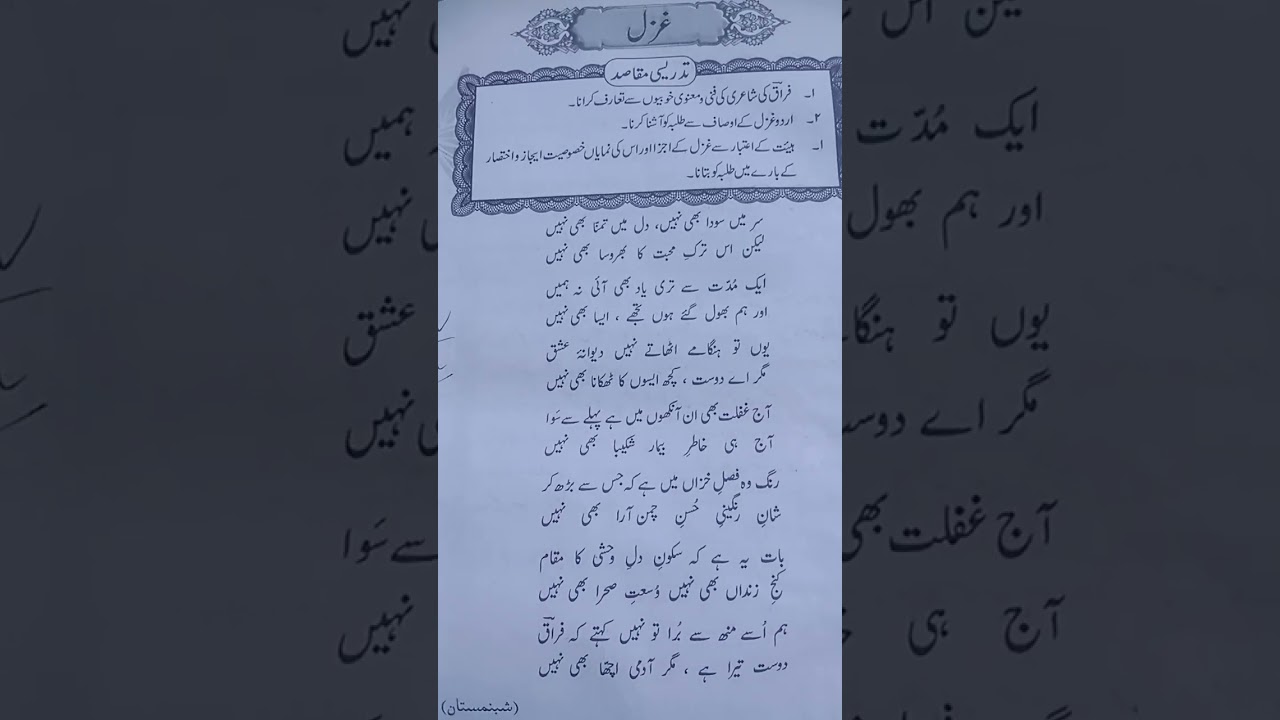 غزل
تدریسی مقاصد
۱۔ فراقؔ کی شاعری کی فنی و معنوی خوبیوں سے تعارف کرانا۔
۲۔ اردو غزل کے اوصاف سے طلبہ کو آشنا کرنا۔
۱۔ ہیئت کے اعتبار سے غزل کے اجزا اور اس کی نمایاں خصوصیت ایجاز و اختصار
کے بارے میں طلبہ کو بتانا۔
سر میں سودا بھی نہیں، دل میں تمنّا بھی نہیں
لیکن اس ترکِ محبت کا بھروسا بھی نہیں
ایک مُدّت سے تری یاد بھی آئی نہ ہمیں
اور ہم بھول گئے ہوں تجھے ، ایسا بھی نہیں
یوں تو ہنگامے اٹھاتے نہیں دیوانۂ عشق
مگر اے دوست ، کچھ ایسوں کا ٹھکانا بھی نہیں
آج غفلت بھی ان آنکھوں میں ہے پہلے سے سَوا
آج ہی خاطرِ بیمار شکیبا بھی نہیں
رنگ وہ فصلِ خزاں میں ہے کہ جس سے بڑھ کر
شانِ رنگینیِ حُسنِ چمن آرا بھی نہیں
بات یہ ہے کہ سکونِ دلِ وحشی کا مقام
کُنجِ زنداں بھی نہیں وُسعتِ صحرا بھی نہیں
ہم اُسے منھ سے بُرا تو نہیں کہتے کہ فراقؔ
دوست تیرا ہے ، مگر آدمی اچھّا بھی نہیں
(شبنمستان)